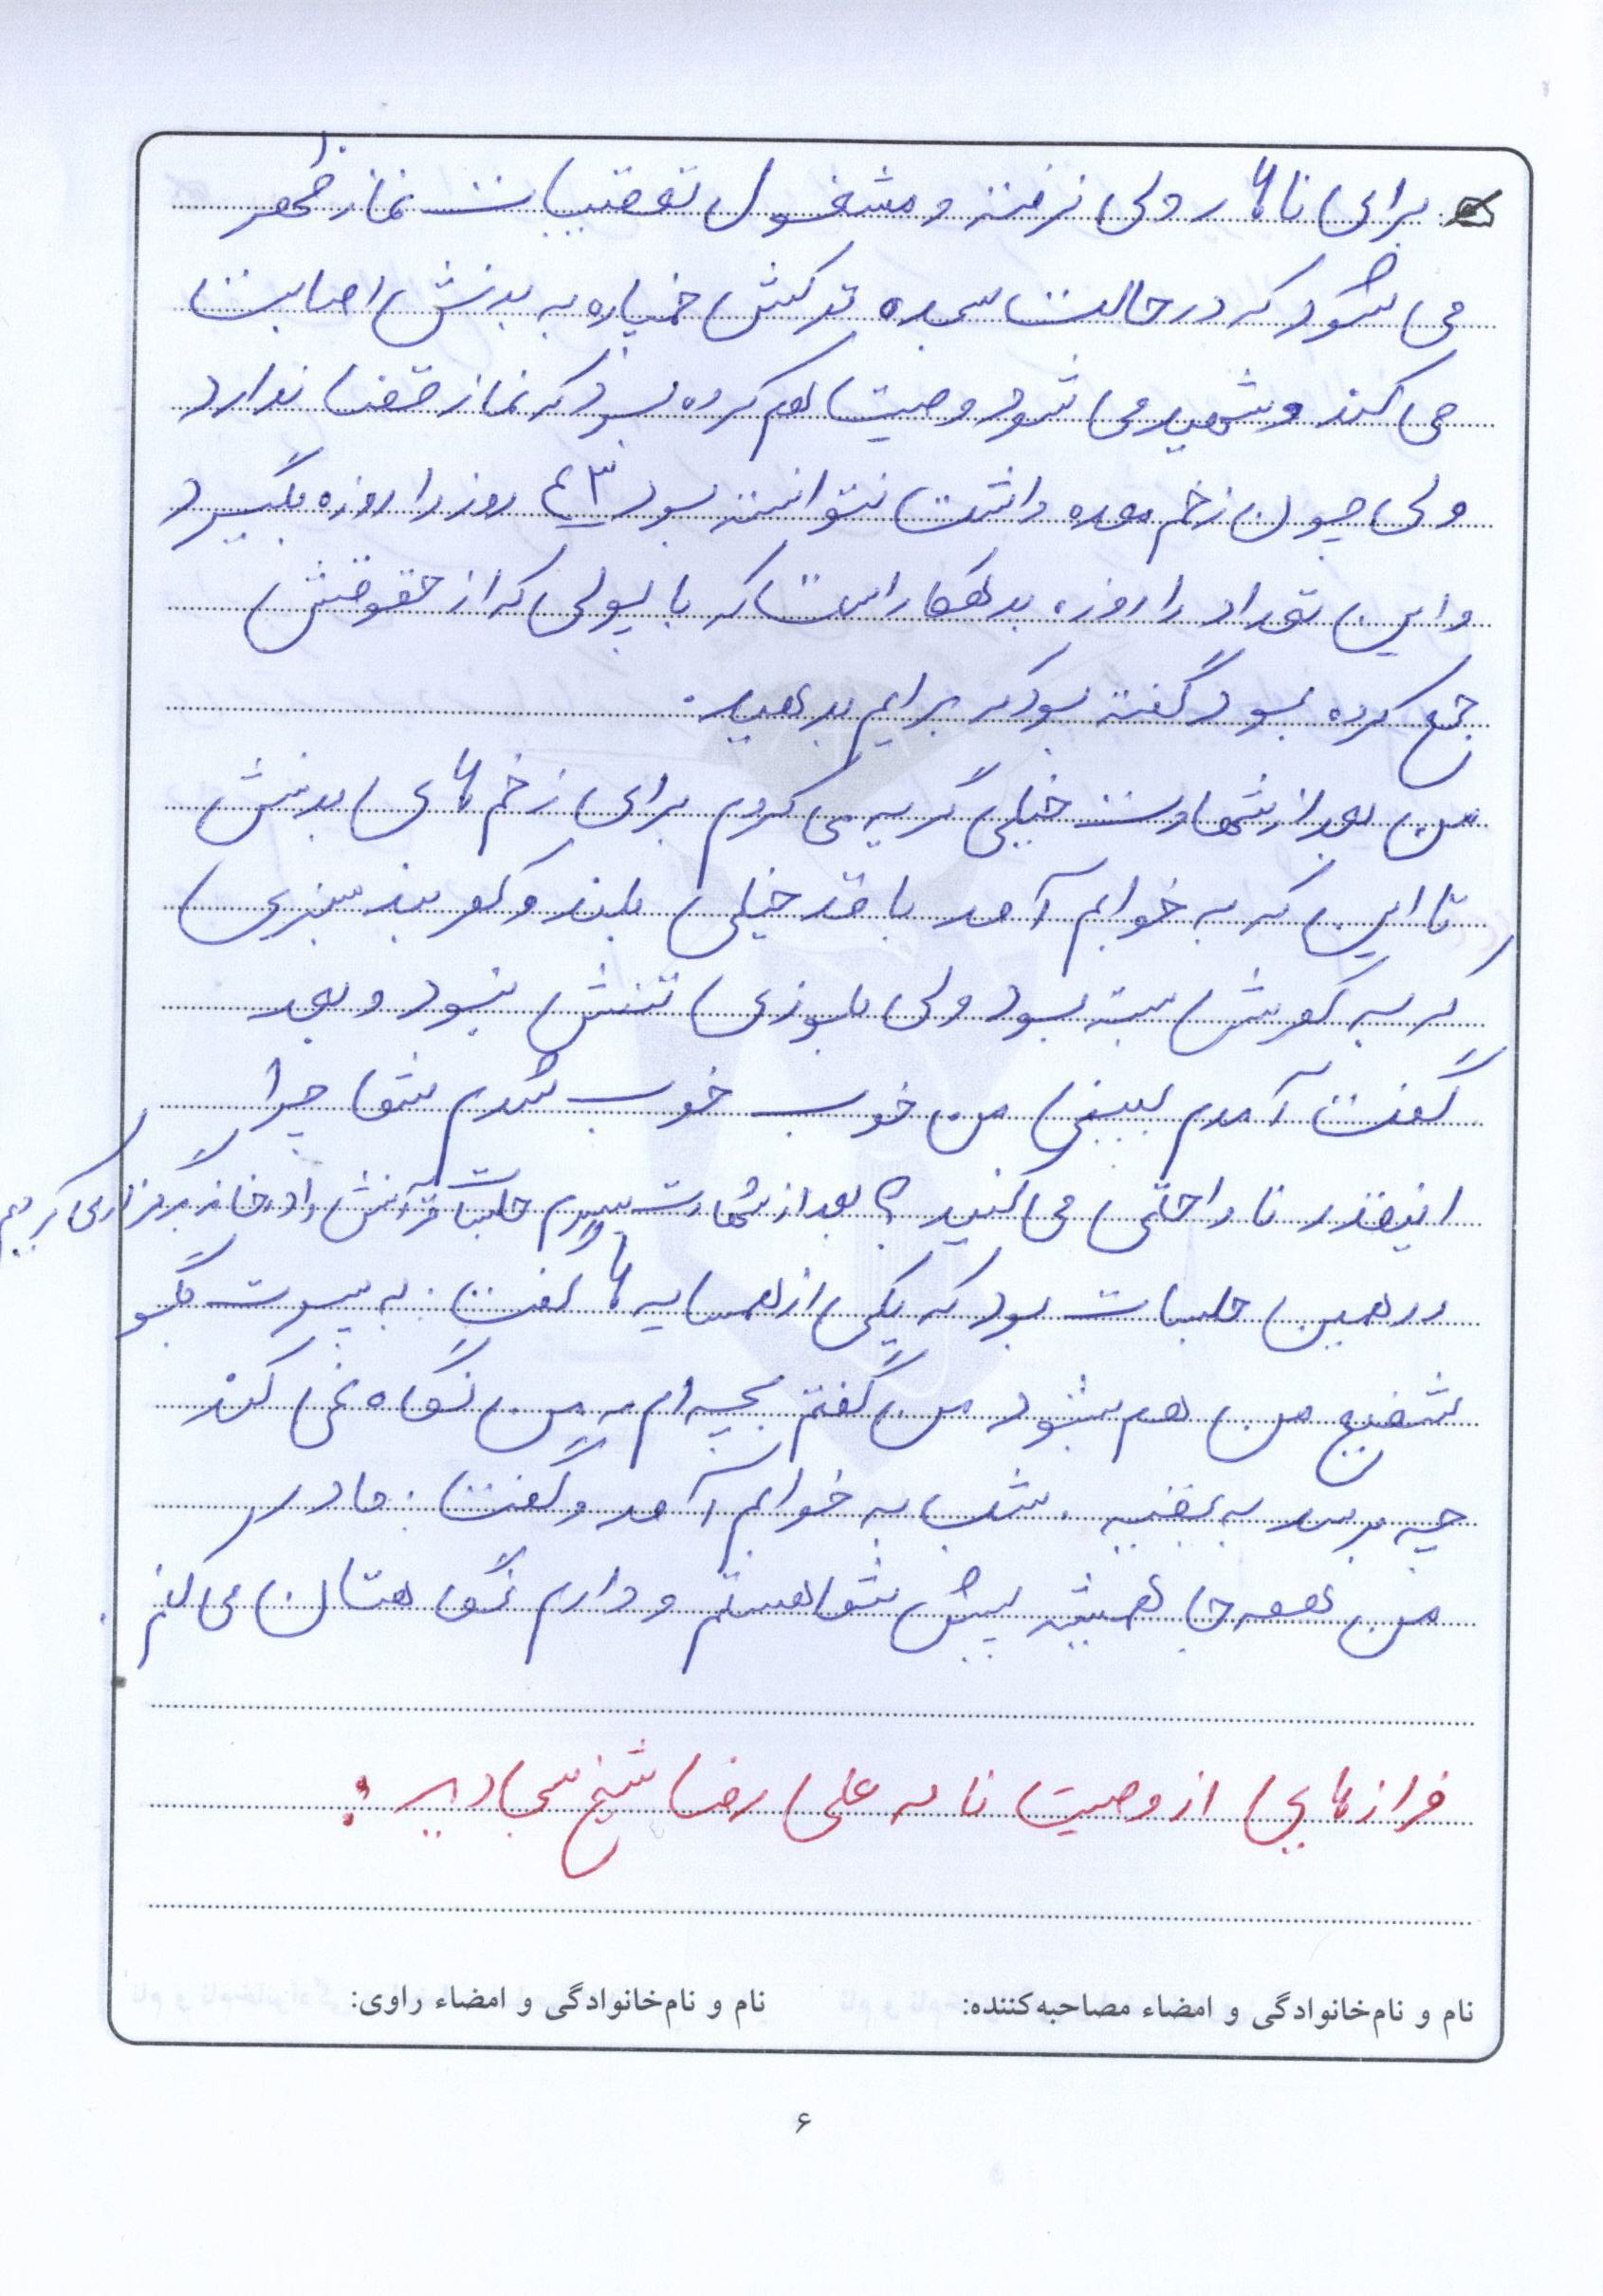 برای ناهار ولی نرفته و مشغول تعقیبات نماز ظهر
می شود که در حالت سجده ترکش خمپاره به بدنش اصابت
می کند و شهید می شود وصیت هم کرده بود که نماز قضا ندارد
ولی چون زخم معده داشت نتوانسته بود ۴۳ روز را روزه بگیرد
و این تعداد را روزه بدهکار است که با پولی که از حقوقش
جمع کرده بود گفته بود که برایم بدهید.
من بعد از شهادت خیلی گریه می کردم برای زخم های بدنش
تا این که به خوابم آمد با قد خیلی بلند و کمربند سبزی
که به کمرش بسته بود ولی بلوزی تنش نبود و بعد
گفت آمدم ببینی من خوب خوب شدم شما چرا
اینقدر ناراحتی می کنید؟ بعد از شهادت پسرم جلسات قرآنش را در خانه برگزار می کردیم
در همین جلسات بود که یکی از همسایه ها گفت: به پسرت بگو
شفیع من هم بشود من گفتم بچه ام به من نگاه نمی کند
چه برسد به بقیه. شب به خوابم آمد و گفت: مادر
من همه جا همیشه پیش شما هستم و دارم نگاهتان می کنم.
فرازهایی از وصیت نامه علی رضا شیخ سجادیه:
نام و نام‌خانوادگی و امضاء مصاحبه‌کننده: نام و نام‌خانوادگی و امضاء راوی:
۶